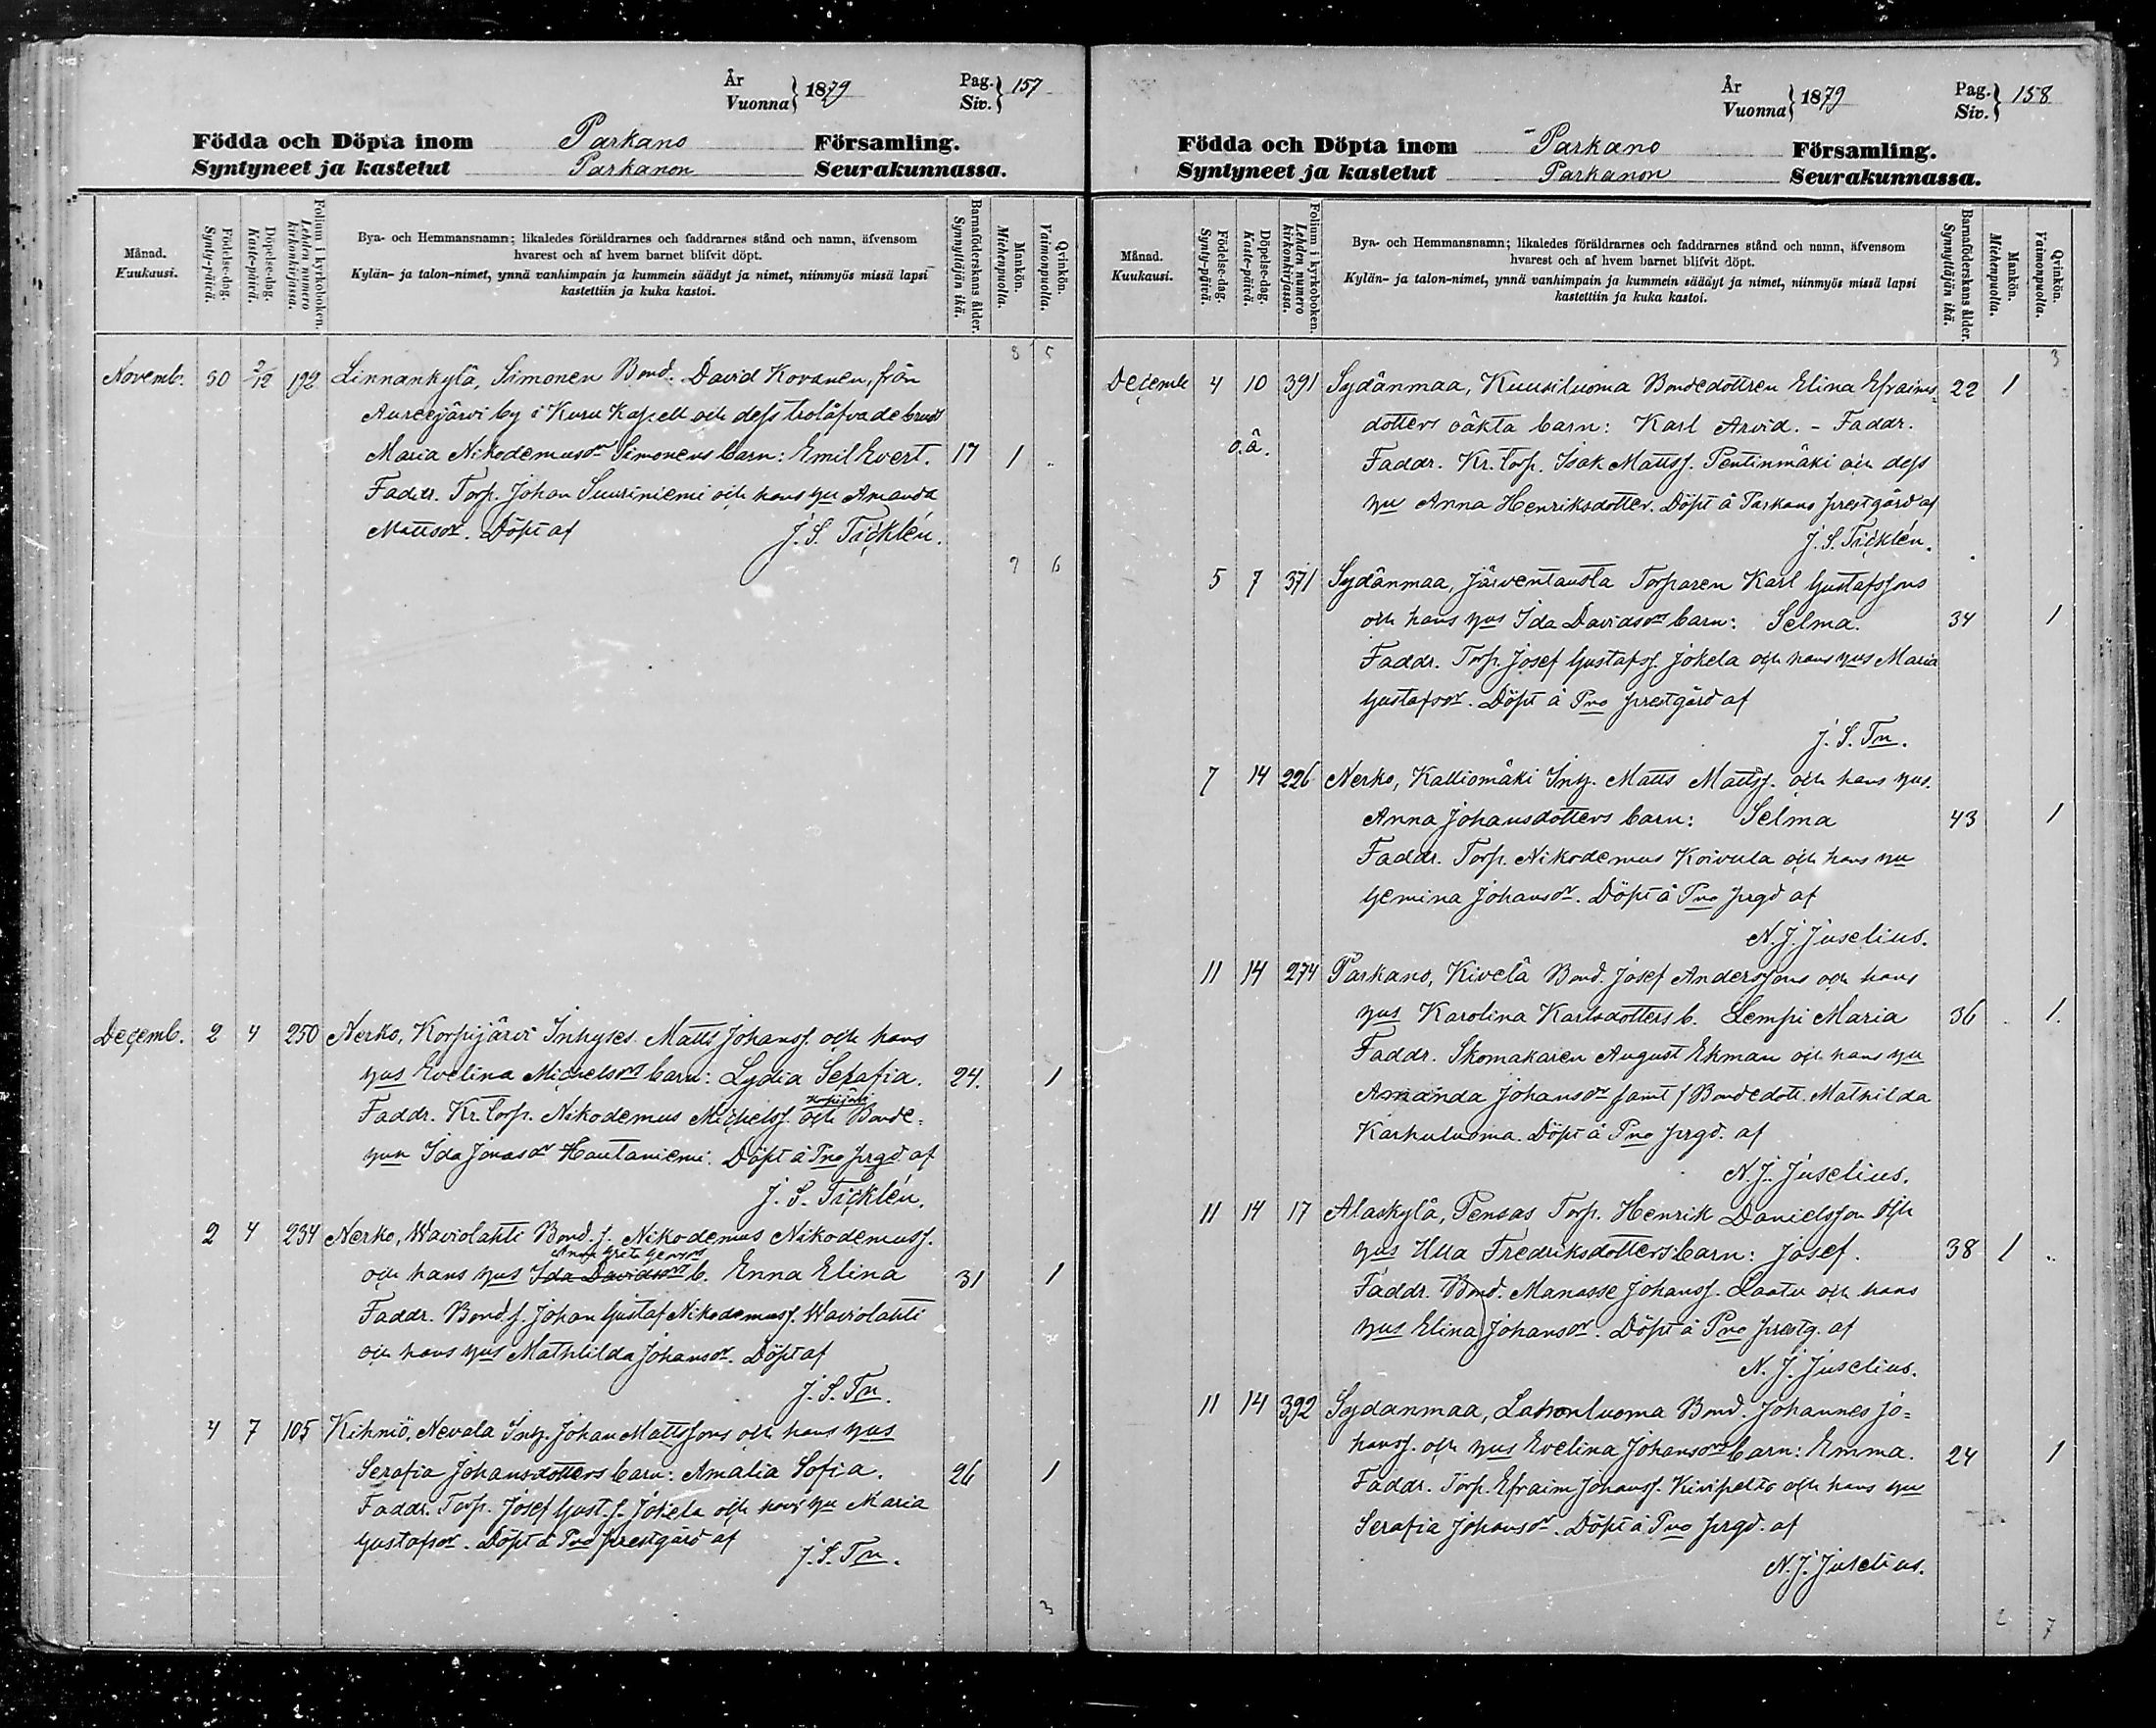 År
Vuonna } 1879
Pag.
Siv. } 157
Födda och Döpta inom Parkano Församling.
Syntyneet ja kastetut Parkanon Seurakunnassa.
Månad.
Kuukausi.
Födelse-dag.
Synty-päivä.
Döpelse-dag.
Kaste-päivä.
Folium i kyrkoboken.
Lehden numero
kirkonkirjassa.
Bya- och Hemmansnamn; likaledes föräldrarnes och faddrarnes stånd och namn, äfvensom
hvarest och af hvem barnet blifvit döpt.
Kylän- ja talon-nimet, ynnä vanhimpain ja kummein säädyt ja nimet, niinmyös missä lapsi
kastettiin ja kuka kastoi.
Barnaföderskans ålder.
Synnyttäjän ikä.
Mankön.
Miehenpuolia.
Qvinkön.
Vaimonpuolia.
8 5
Novemb. 30 2/12 192 Linnankylä, Simonen Bond. David Kovanen, från
Aureejärvi by i Kuru Kapell och dess trolofvade brud
Maria Nikodemusdr Simonens barn: Emil Evert. 17 1
Faddr. Torp. Johan Suuriniemi och hans hu Amanda
Mattsdr. Döpt af J. S. Ticklén.
9 6
Decemb. 2 4 250 Nerko, Korpijärvi Inhyses Matts Johanss. och hans
hus Evelina Michelsdrs barn: Lydia Serafia. 24. 1
Faddr. Kr. torp. Nikodemus Michelss. och Bonde-
hun Ida Jonasdr Hautaniemi. Döpt å Pno prgd. af
J. S. Ticklén.
2 4 234 Nerko, Waviolahti Bond. s. Nikodemus Nikodemuss.
och hans hus Ida Davidsdrs b. Enna Elina 31 1
Faddr. Bond. s. Johan Gustaf Nikodemuss. Waviolahti
och hans hus Mathilda Johansdr. Döpt af
J. S. Tn.
4 7 105 Kihniö, Nevala Inh. Johan Mattssons och hans hus
Serafia Johansdotters barn: Amalia Sofia. 26 1
Faddr. Torp. Josef Gust. s. Jokela och hans hu Maria
Gustafsdr. Döpt å Pno prestgård af J. S. Tn.
3
År
Vuonna } 1879
Pag.
Siv. } 158
Födda och Döpta inom Parkano Församling.
Syntyneet ja kastetut Parkanon Seurakunnassa.
Månad.
Kuukausi.
Födelse-dag.
Synty-päivä.
Döpelse-dag.
Kaste-päivä.
Folium i kyrkoboken.
Lehden numero
kirkonkirjassa.
Bya- och Hemmansnamn; likaledes föräldrarnes och faddrarnes stånd och namn, äfvensom
hvarest och af hvem barnet blifvit döpt.
Kylän- ja talon-nimet, ynnä vanhimpain ja kummein säädyt ja nimet, niinmyös missä lapsi
kastettiin ja kuka kastoi.
Barnaföderskans ålder.
Synnyttäjän ikä.
Mankön.
Miehenpuolia.
Qvinkön.
Vaimonpuolia.
3
Decemb 4 10 391 Sydänmaa, Kuusiluoma Bondedottren Elina Efraims- 22 1
dotters oäkta barn: Karl Arvid. - Faddr.
o.ä. Faddr. Kr. torp. Isak Matts s. Pentinmäki och dess
hu Anna Henriksdotter. Döpt å Parkano prestgård af
J. S. Ticklén.
5 7 371 Sydänmaa, Järventausta Torparen Karl Gustafssons
och hans hus Ida Davidsdrs barn: Selma. 34 1
Faddr. Torp. Josef Gustafss. Jokela och hans hus Maria
Gustafsdr. Döpt å Pno prestgård af
J. S. Tn.
7 14 226 Nerko, Kalliomäki Inh. Matts Mattss. och hans hus.
Anna Johansdotters barn: Selma 43 1
Faddr. Torp. Nikodemus Koivula och hans hu
Gemina Johansdr. Döpt å Pno prgd af
N. J. Juselius.
11 14 274 Parkano, Kivelä Bond. Josef Anderssons och hans
hus Karolina Karlsdotters b. Lempi Maria 36 1.
Faddr. Skomakaren August Ekman och hans hu
Amanda Johansdr samt Bondedott. Mathilda
Karhuluoma. Döpt å Pno prgd. af
N. J. Juselius.
11 14 17 Alaskylä, Pensas Torp. Henrik Danielsson och
hus Ulla Fredriksdotters barn: Josef. 38 1
Faddr. Bond. Manasse Johanss. Laatu och hans
hus Elina Johansdr. Döpt å Pno prestg. af
N. J. Juselius.
11 14 392 Sydanmaa, Lahonluoma Bond. Johannes Jo-
hanss. och hus Evelina Johansdrs barn: Emma. 24 1
Faddr. Torp. Efraim Johanss. Kivipelto och hans hu
Serafia Johansdr. Döpt å Pno prgd. af
N. J. Juselius.
2 7